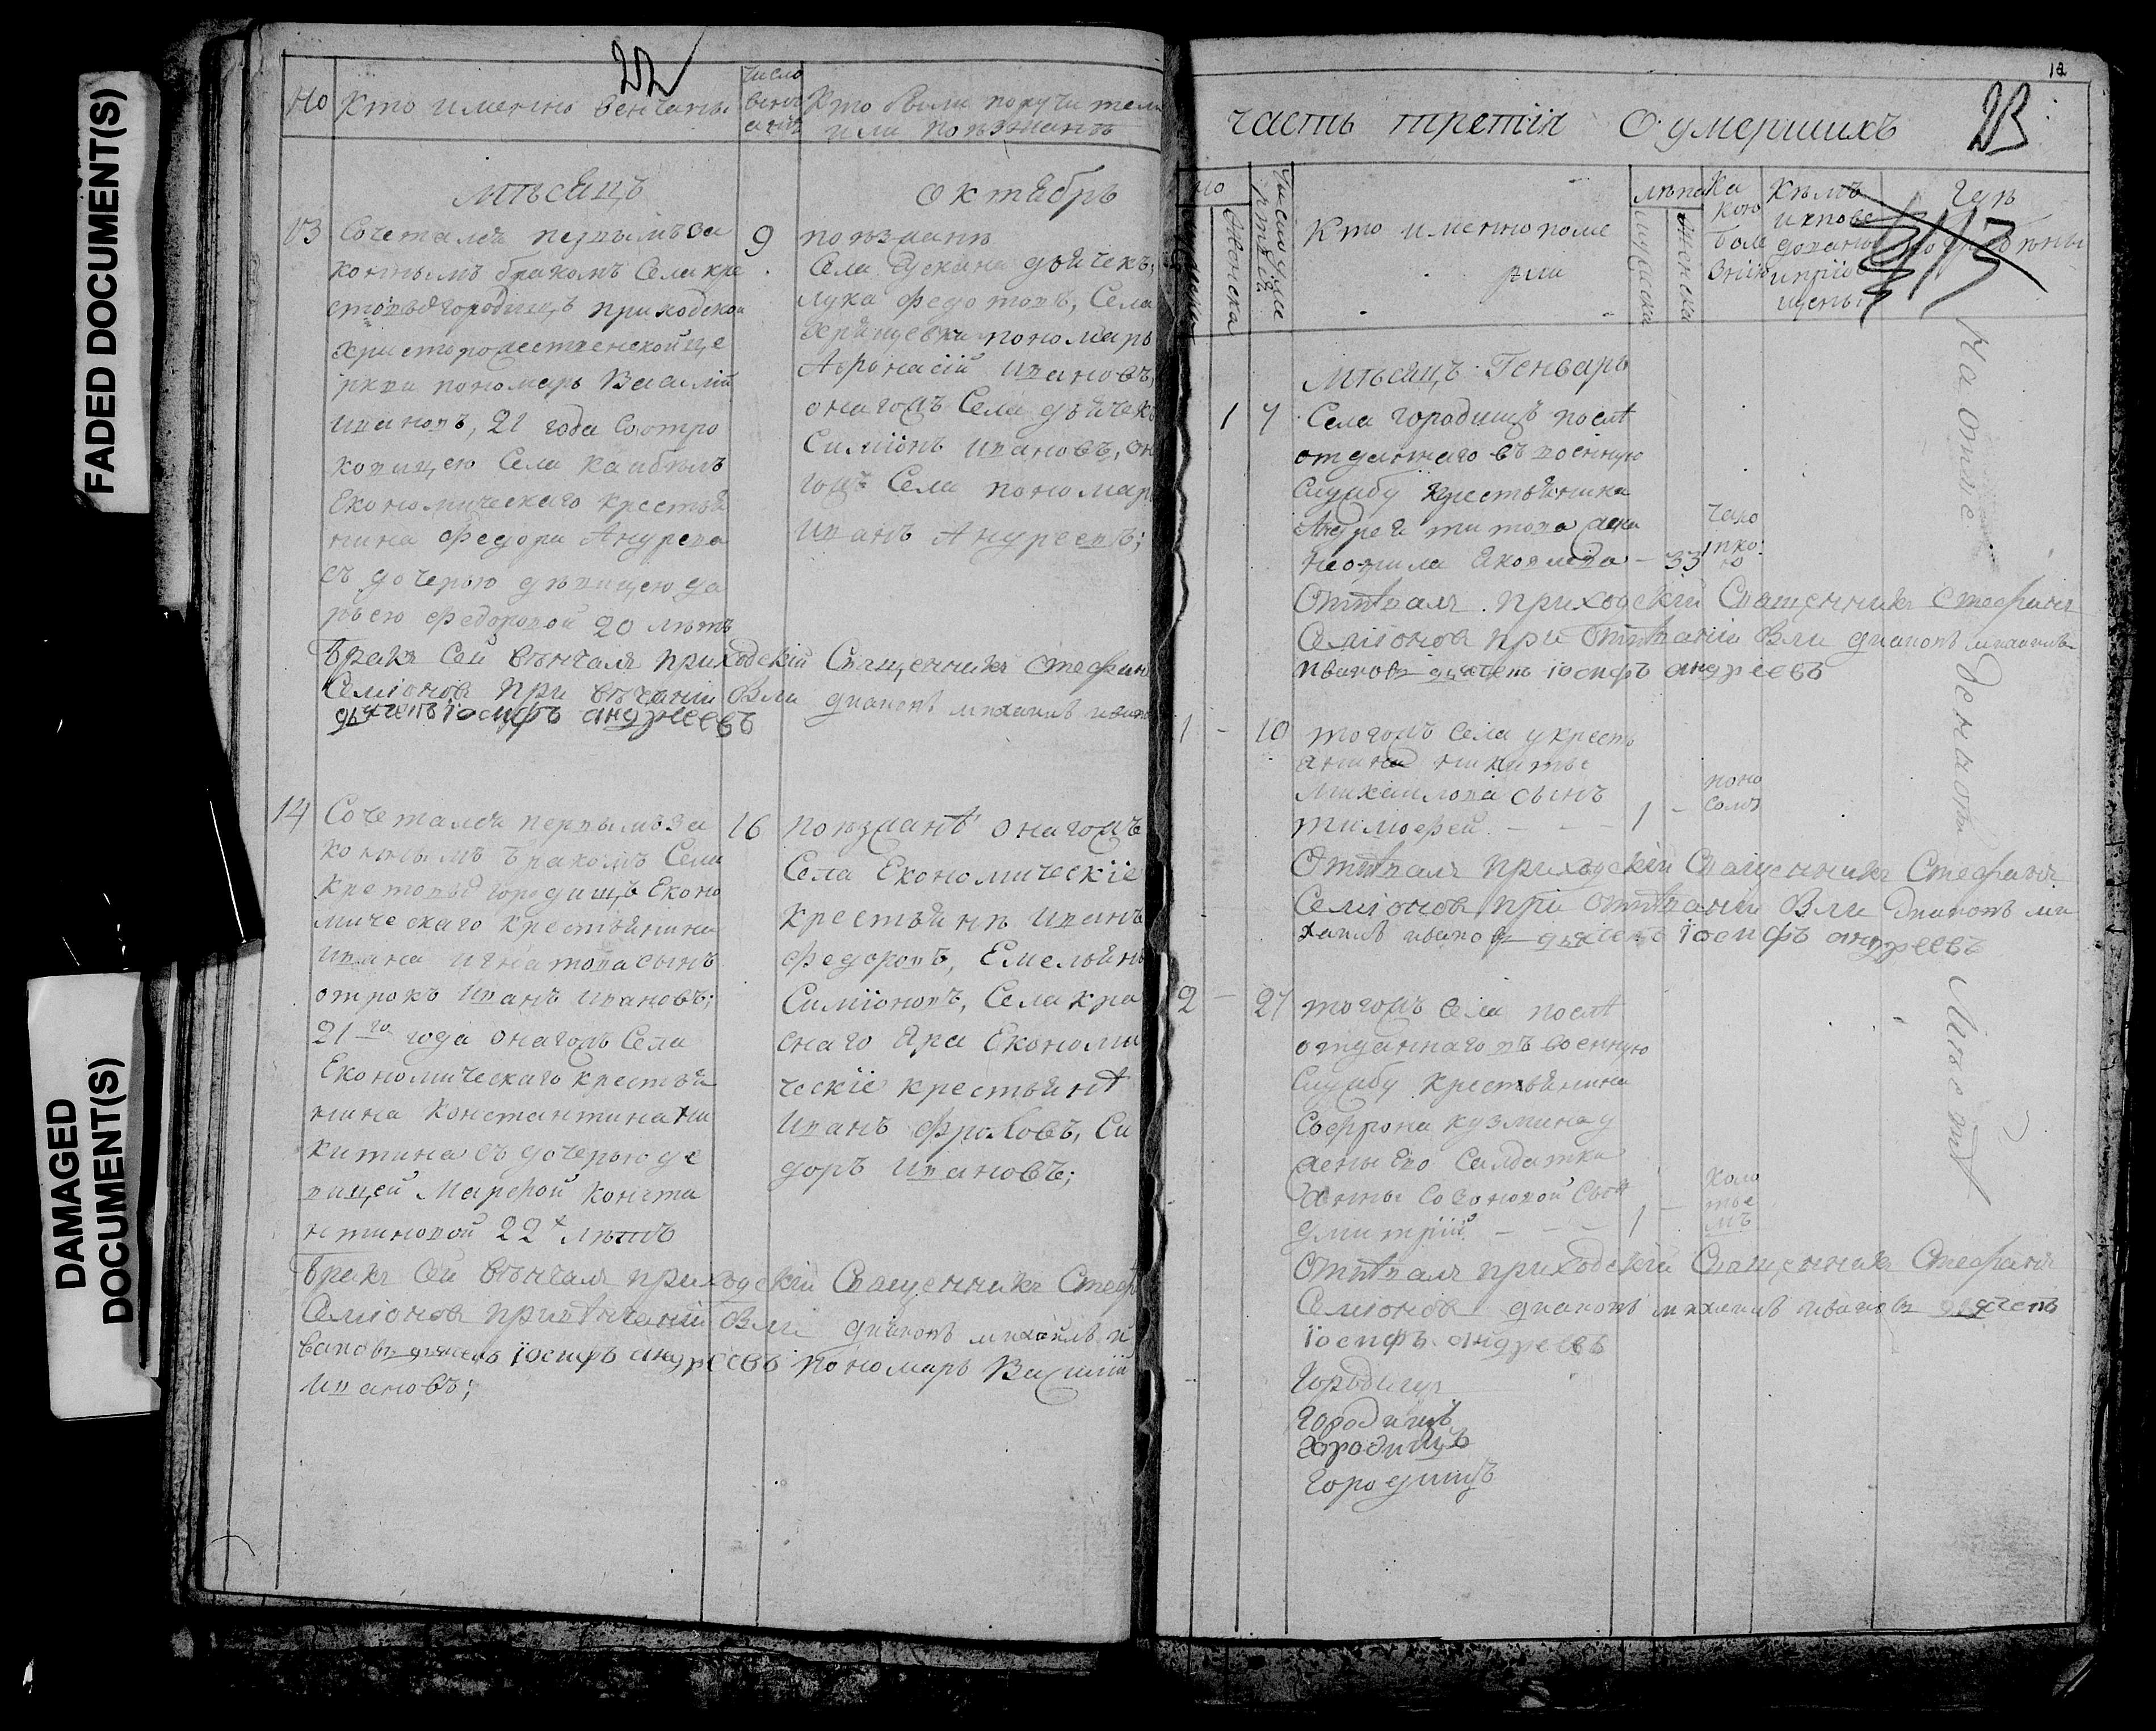 FADED DOCUMENT(S)
DAMAGED
DOCUMENT(S)
22
Но
Кто именно венчаны
число
венч
ания
Кто были поручители
или поезжанъ
мѣсяцъ
октябрь
13
Сочетался первымъ за
коннымъ бракомъ Села кре
стовыхъ городищъ приходской
христорождественской це
ркви пономарь Василій
Ивановъ, 21 года со отро
ковицею Села каибѣлъ
Економическаго крестья
нина Федора Андреева
съ дочерью дѣвицею да
рьею Федоровой 20 лѣтъ
9
поезжанѣ
Села дьячекъ,
лука федотовъ, Села
хрящевки пономарь
Афонасій Ивановъ,
онагожъ Села дьячекъ
Симіонъ Ивановъ, он
гожъ Села пономарь
Иванъ Андреевъ;
бракъ Сей вѣнчалъ приходскій Священникъ Стефанъ
Семіоновъ при вѣчаніи были диаконъ михаилъ ивано
дьячекъ іосифъ андреевъ
14
Сочетался первымъ за
коннымъ бракомъ Села
Крестовыхъ городищъ Еконо
мическаго крестьянина
Ивана игнатова сынъ
отрокъ Иванъ Ивановъ;
21 го года онагожъ Села
Економическаго крестья
нина константина ни
китина съ дочерью де
вицей Марфой конста
нтиновой 22 х лѣтъ
16
поюзжанѣ онагожъ
Села Економическіе
крестьянѣ Иванъ
федоровъ, Емельянъ
Симіоновъ, Села кра
снаго Яра Економи
ческіе крестьянѣ
Иванъ фроловъ, Си
доръ Ивановъ;
бракъ Сей вѣнчалъ приходскій Священникъ Стеф
Семіоновъ при вѣнчаніи были диаконъ михаилъ и
вановъ дьячекъ іосифъ андреевъ пономарь Василій
Ивановъ;
12
23
часть третія О умершихъ
Но
Женска
Число умертвія
Кто именно поме
рли
лѣта
мужеска
женска
Ка
кою
боле
знію
Кѣмъ
испове
дованы
и пріоб
щены
Гдѣ
погребены
Мѣсяцъ Генварь
1
7
Села городищъ послѣ
отданнаго въ военную
Службу Крестьянина
Андрея титова жена
неонила Яковлева – 33
На опше денномъ Мѣстѣ
Отпѣвалъ приходскій Священникъ Стефанъ
Семіоновъ при отпѣваніи были диаконъ михаилъ
ивановъ дьячекъ іосифъ андреевъ
1 –
10
тогожъ Села у кресть
янина никиты
Михаилова сынъ
тимофей – – – 1 –
поно
сомъ
Отпѣвалъ приходскій Священникъ Стефанъ
Семіоновъ при отпѣваніи были диаконъ ми
хаилъ ивановъ дьячекъ іосифъ андреевъ
2 –
27
тогожъ Села послѣ
отданнаго въ военную
Службу Крестьянина
Софрона кузмина у
жены Его Салдатки
Анны Сынъ
дмитрій – – – 1 –
коло
тье
мъ
Отпѣвалъ приходскій Священникъ Стефанъ
Семіоновъ диаконъ михаилъ ивановъ дьячекъ
іосифъ андреевъ
Городищъ
Городищъ
Городищъ
Городищъ